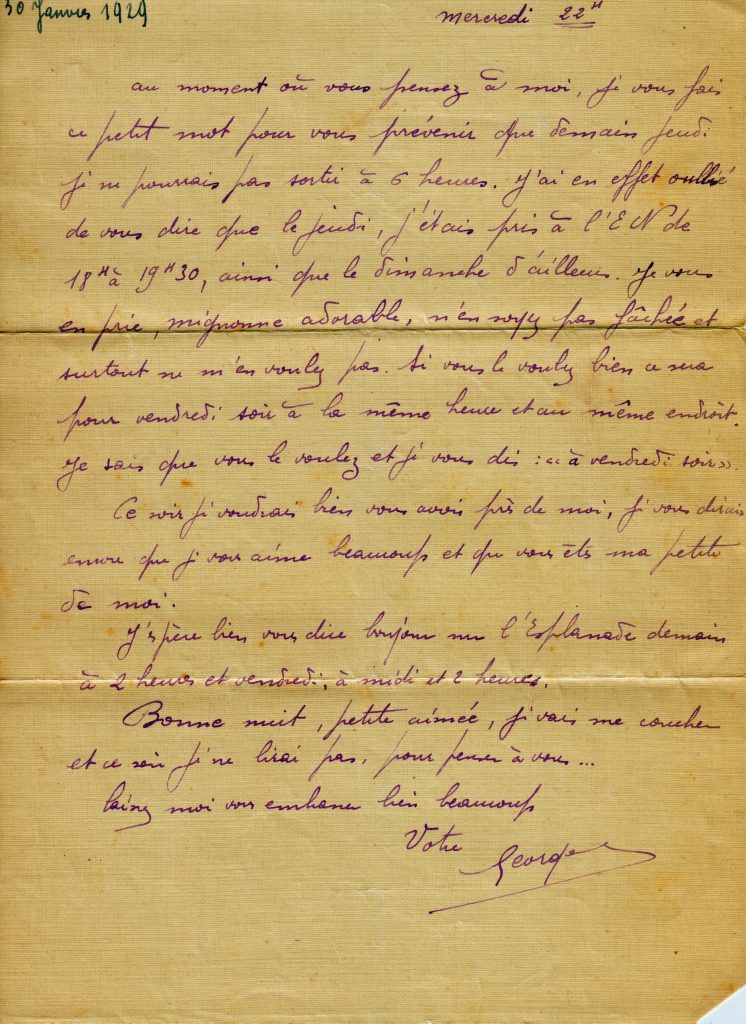 30 Janvier 1929
Mercredi 22H
au moment où vous pensez à moi, je vous fais
ce petit mot pour vous prévenir que demain jeudi
je ne pourrais pas sortir à 6 heures. J'ai en effet oublié
de vous dire que le jeudi, j'étais pris à l'EN de
18H à 19H30, ainsi que le dimanche d'ailleurs. Je vous
en prie, mignonne adorable, n'en soyez pas fâchée et
surtout ne m'en voulez pas. Si vous le voulez bien ce sera
pour vendredi soir à la même heure et au même endroit.
Je sais que vous le voulez et je vous dis : « à vendredi soir »
Ce soir je voudrais bien vous avoir près de moi, je vous dirais
encore que je vous aime beaucoup et que vous êtes ma petite
à moi.
J'espère bien vous dire bonjour sur l'Esplanade demain
à 2 heures et vendredi, à midi et 2 heures.
Bonne nuit, petite aimée, je vais me coucher
et ce soir je ne lirai pas, pour penser à vous...
laissez moi vous embrasser bien beaucoup
Votre
George